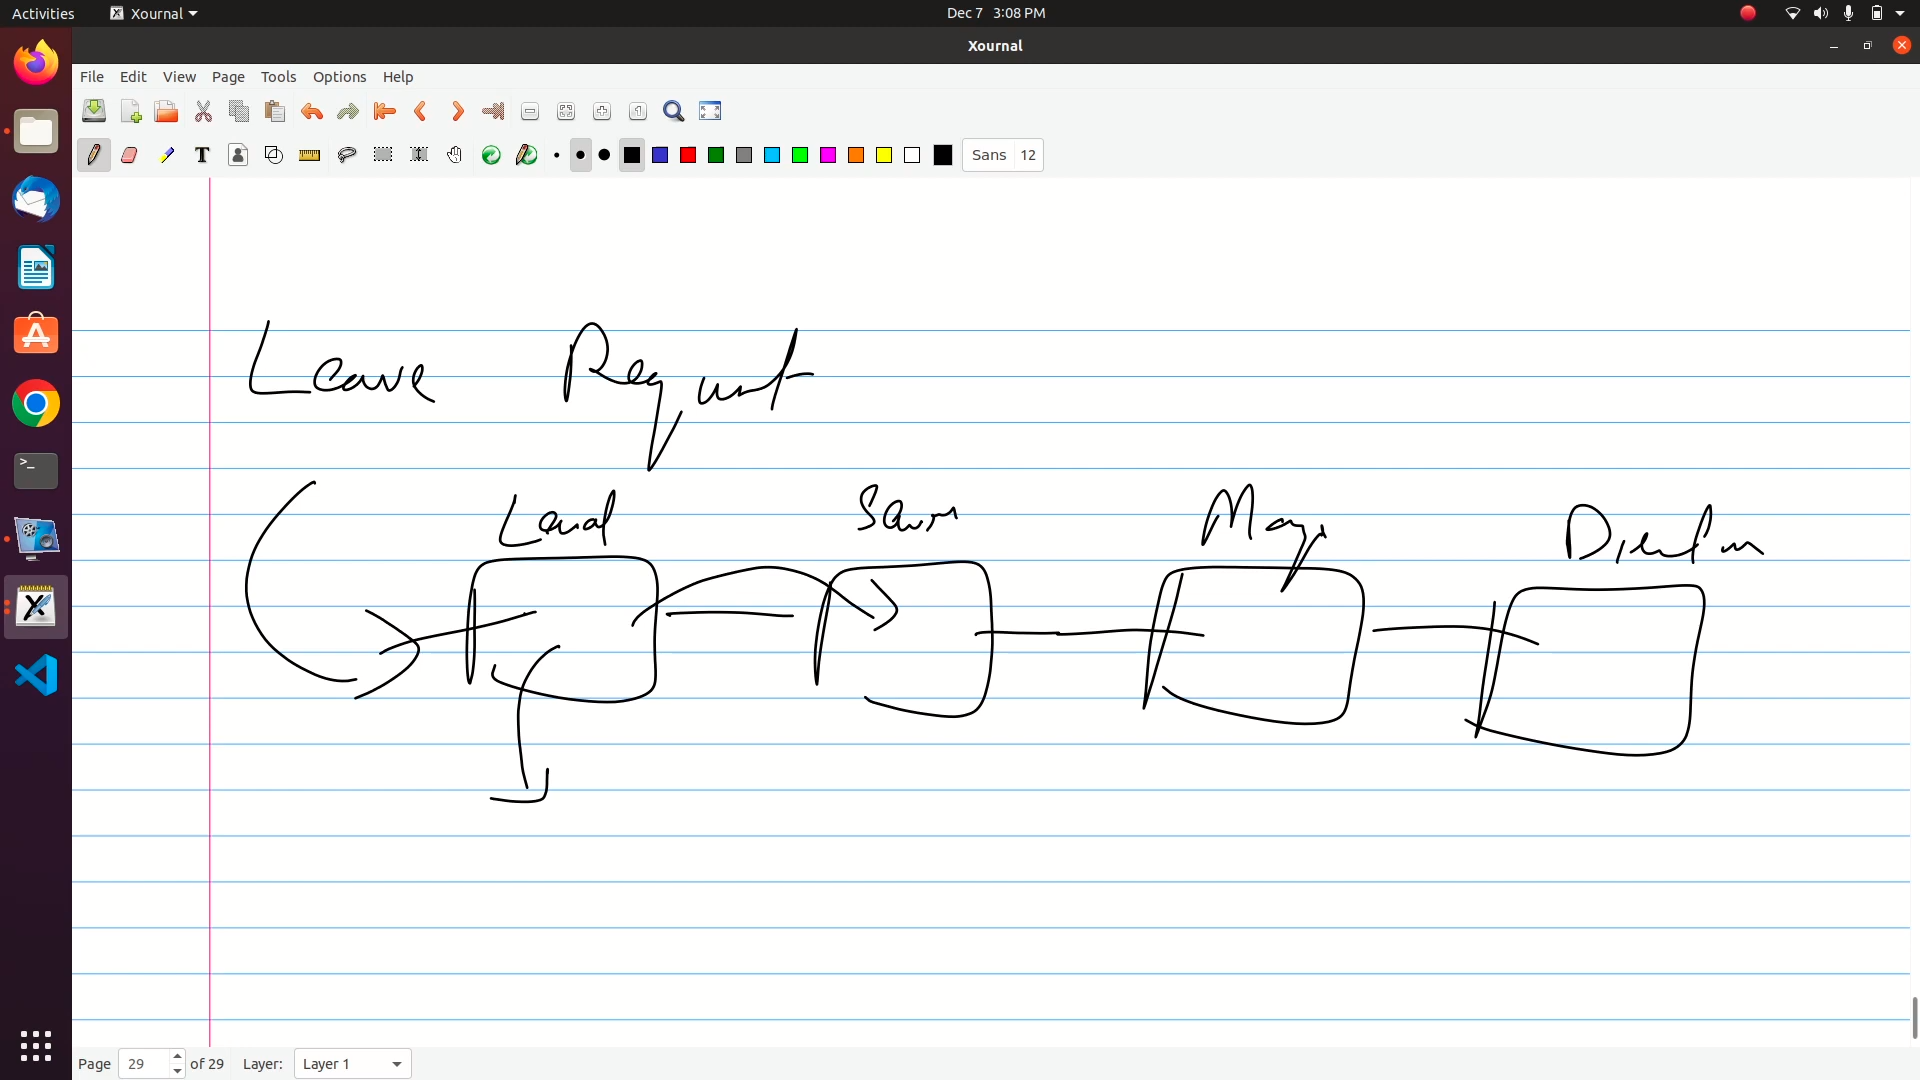 Activities Xournal Dec 7 3:08 PM
Xournal
File Edit View Page Tools Options Help
T Sans 12
Leave Request
Page 29 of 29 Layer: Layer 1